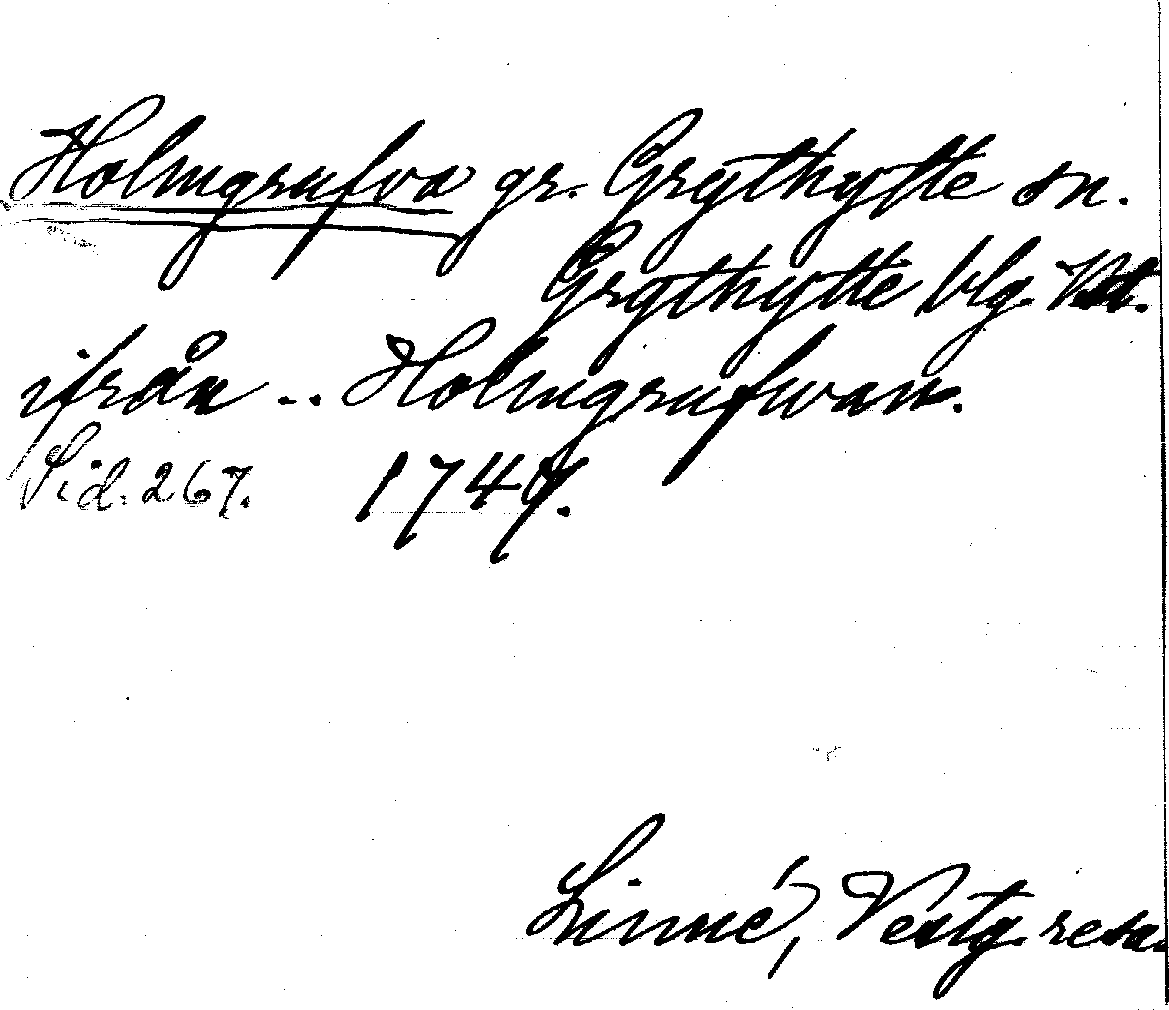 Holmgrufva gr. Grythytte sn.
Grythytte blg. Vstm.
ifrån .. Holmgrufwan.
Sid. 267. 1747.
Linné, Vestg. resa